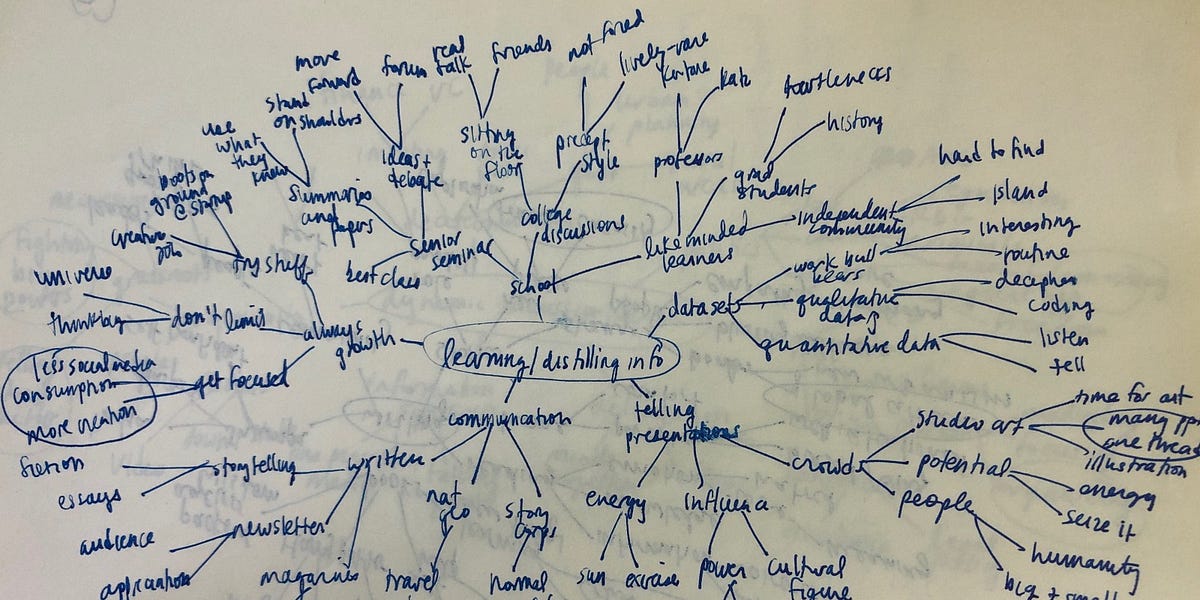 more
forward
forum
real
talk
friends
not forced
lively-rare
kate
hard to find
history
stand
on shoulders
use
what
they
know
ideas +
debate
sitting
on the
floor
precept
style
professors
grad
students
island
boots on
ground
@ startup
summaries
and
papers
college
discussions
like minded
learners
independent
community
interesting
creative
try stuff
best class
senior
seminar
school
work bull
routine
universe
datasets
qualitative
data
decipher
coding
thinking
don't limit
always
growth
learning/distilling info
quantitative data
listen
tell
less social media
consumption
more creation
get focused
communication
telling
presentations
studio art
time for art
many
one thread
illustration
fiction
storytelling
written
crowds
potential
energy
essays
nat
geo
story
corps
energy
influence
people
seize it
audience
newsletter
humanity
application
magazines
travel
normal
sun
exercise
power
cultural
figure
big + small